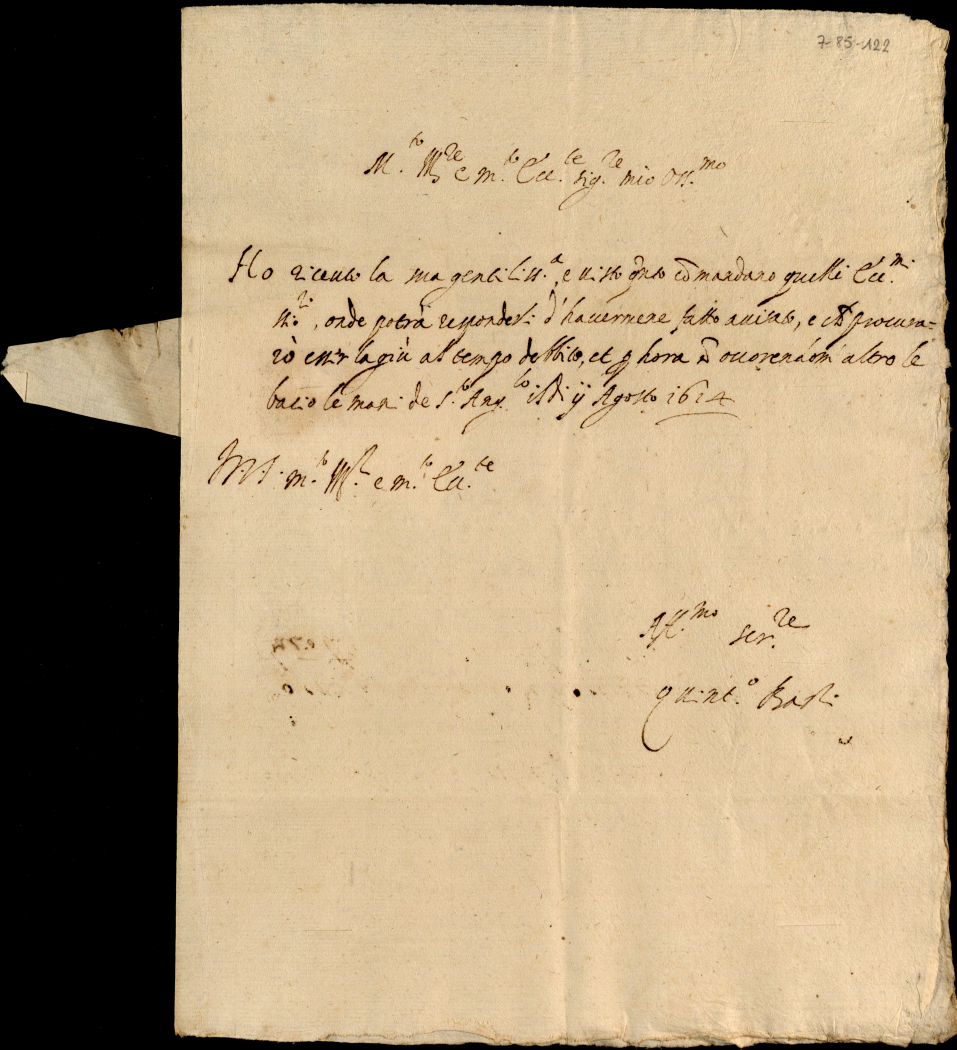 7-85-122
M.to Ill.re e m.to Ecc.te sig.re mio Oss.mo
Ho riceuto la sua gentiliss.a, e uisto q̃nto cõmandano quelli Ecc.mi
ss.ri, onde potrà responderli d'hauermene fatto auisato, e ch'procura=
rò esser lagiù al tempo debbito, et p hora nõ occorendomi altro le
bacio le mani de S.to Ang.lo il dì ij Agosto 1614
D.V.S. m.to Ill.re e m.to Ecc.te
Aff.mo ser.re
Quint.o